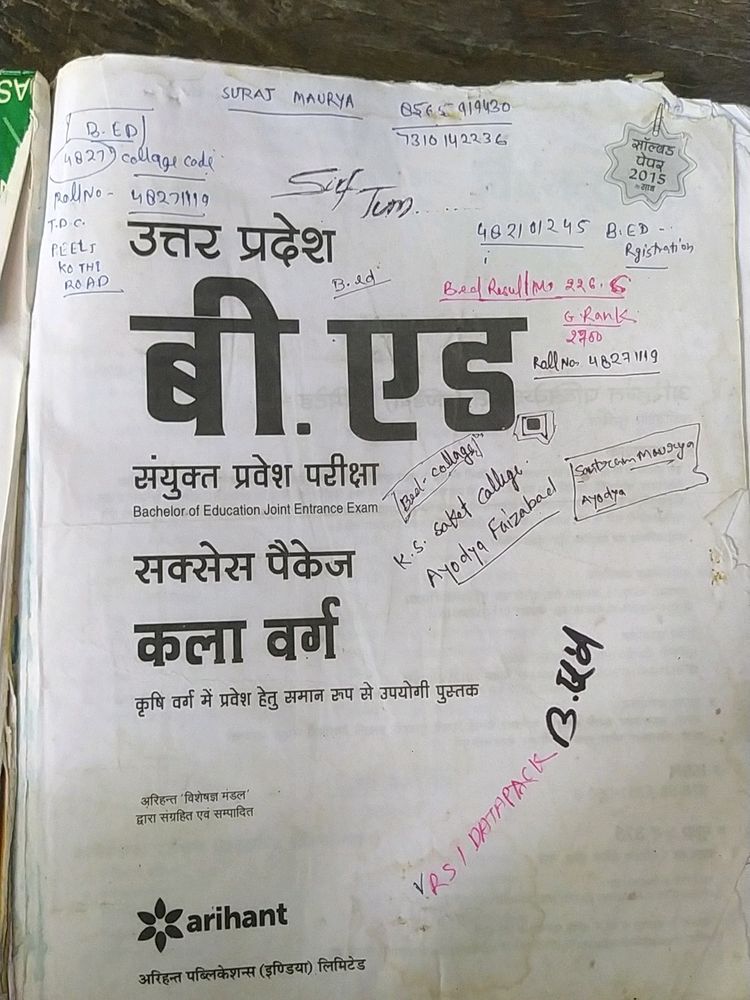 SURAJ MAURYA
8565919430
7310142236
B.ED
48277 collage code
Roll No - 48271119
T.D.C.
REETS
KOTHI
ROAD
सॉल्वड
पेपर
2015
के साथ
Sirf
Tum......
482101245 B.ED -
Rgistration
उत्तर प्रदेश
B.ed
Bed Result Mo 226.6
G.Rank
2700
Roll No 48271119
बी.एड
संयुक्त प्रवेश परीक्षा
Bachelor of Education Joint Entrance Exam
Bed-collage
K.S. saket college.
Ayodya Faizabad
Santram Maurya
Ayodya
सक्सेस पैकेज
कला वर्ग
कृषि वर्ग में प्रवेश हेतु समान रूप से उपयोगी पुस्तक
B.एड
RS 1 DATAPACK
अरिहन्त 'विशेषज्ञ मंडल'
द्वारा संग्रहित एवं सम्पादित
arihant
अरिहन्त पब्लिकेशन्स (इण्डिया) लिमिटेड